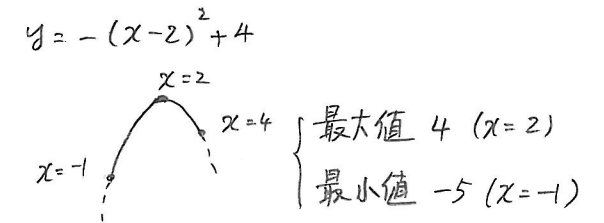 y = -(x-2)²+4
x=2
x=4
x=-1
最大値 4 (x=2)
最小値 -5 (x=-1)